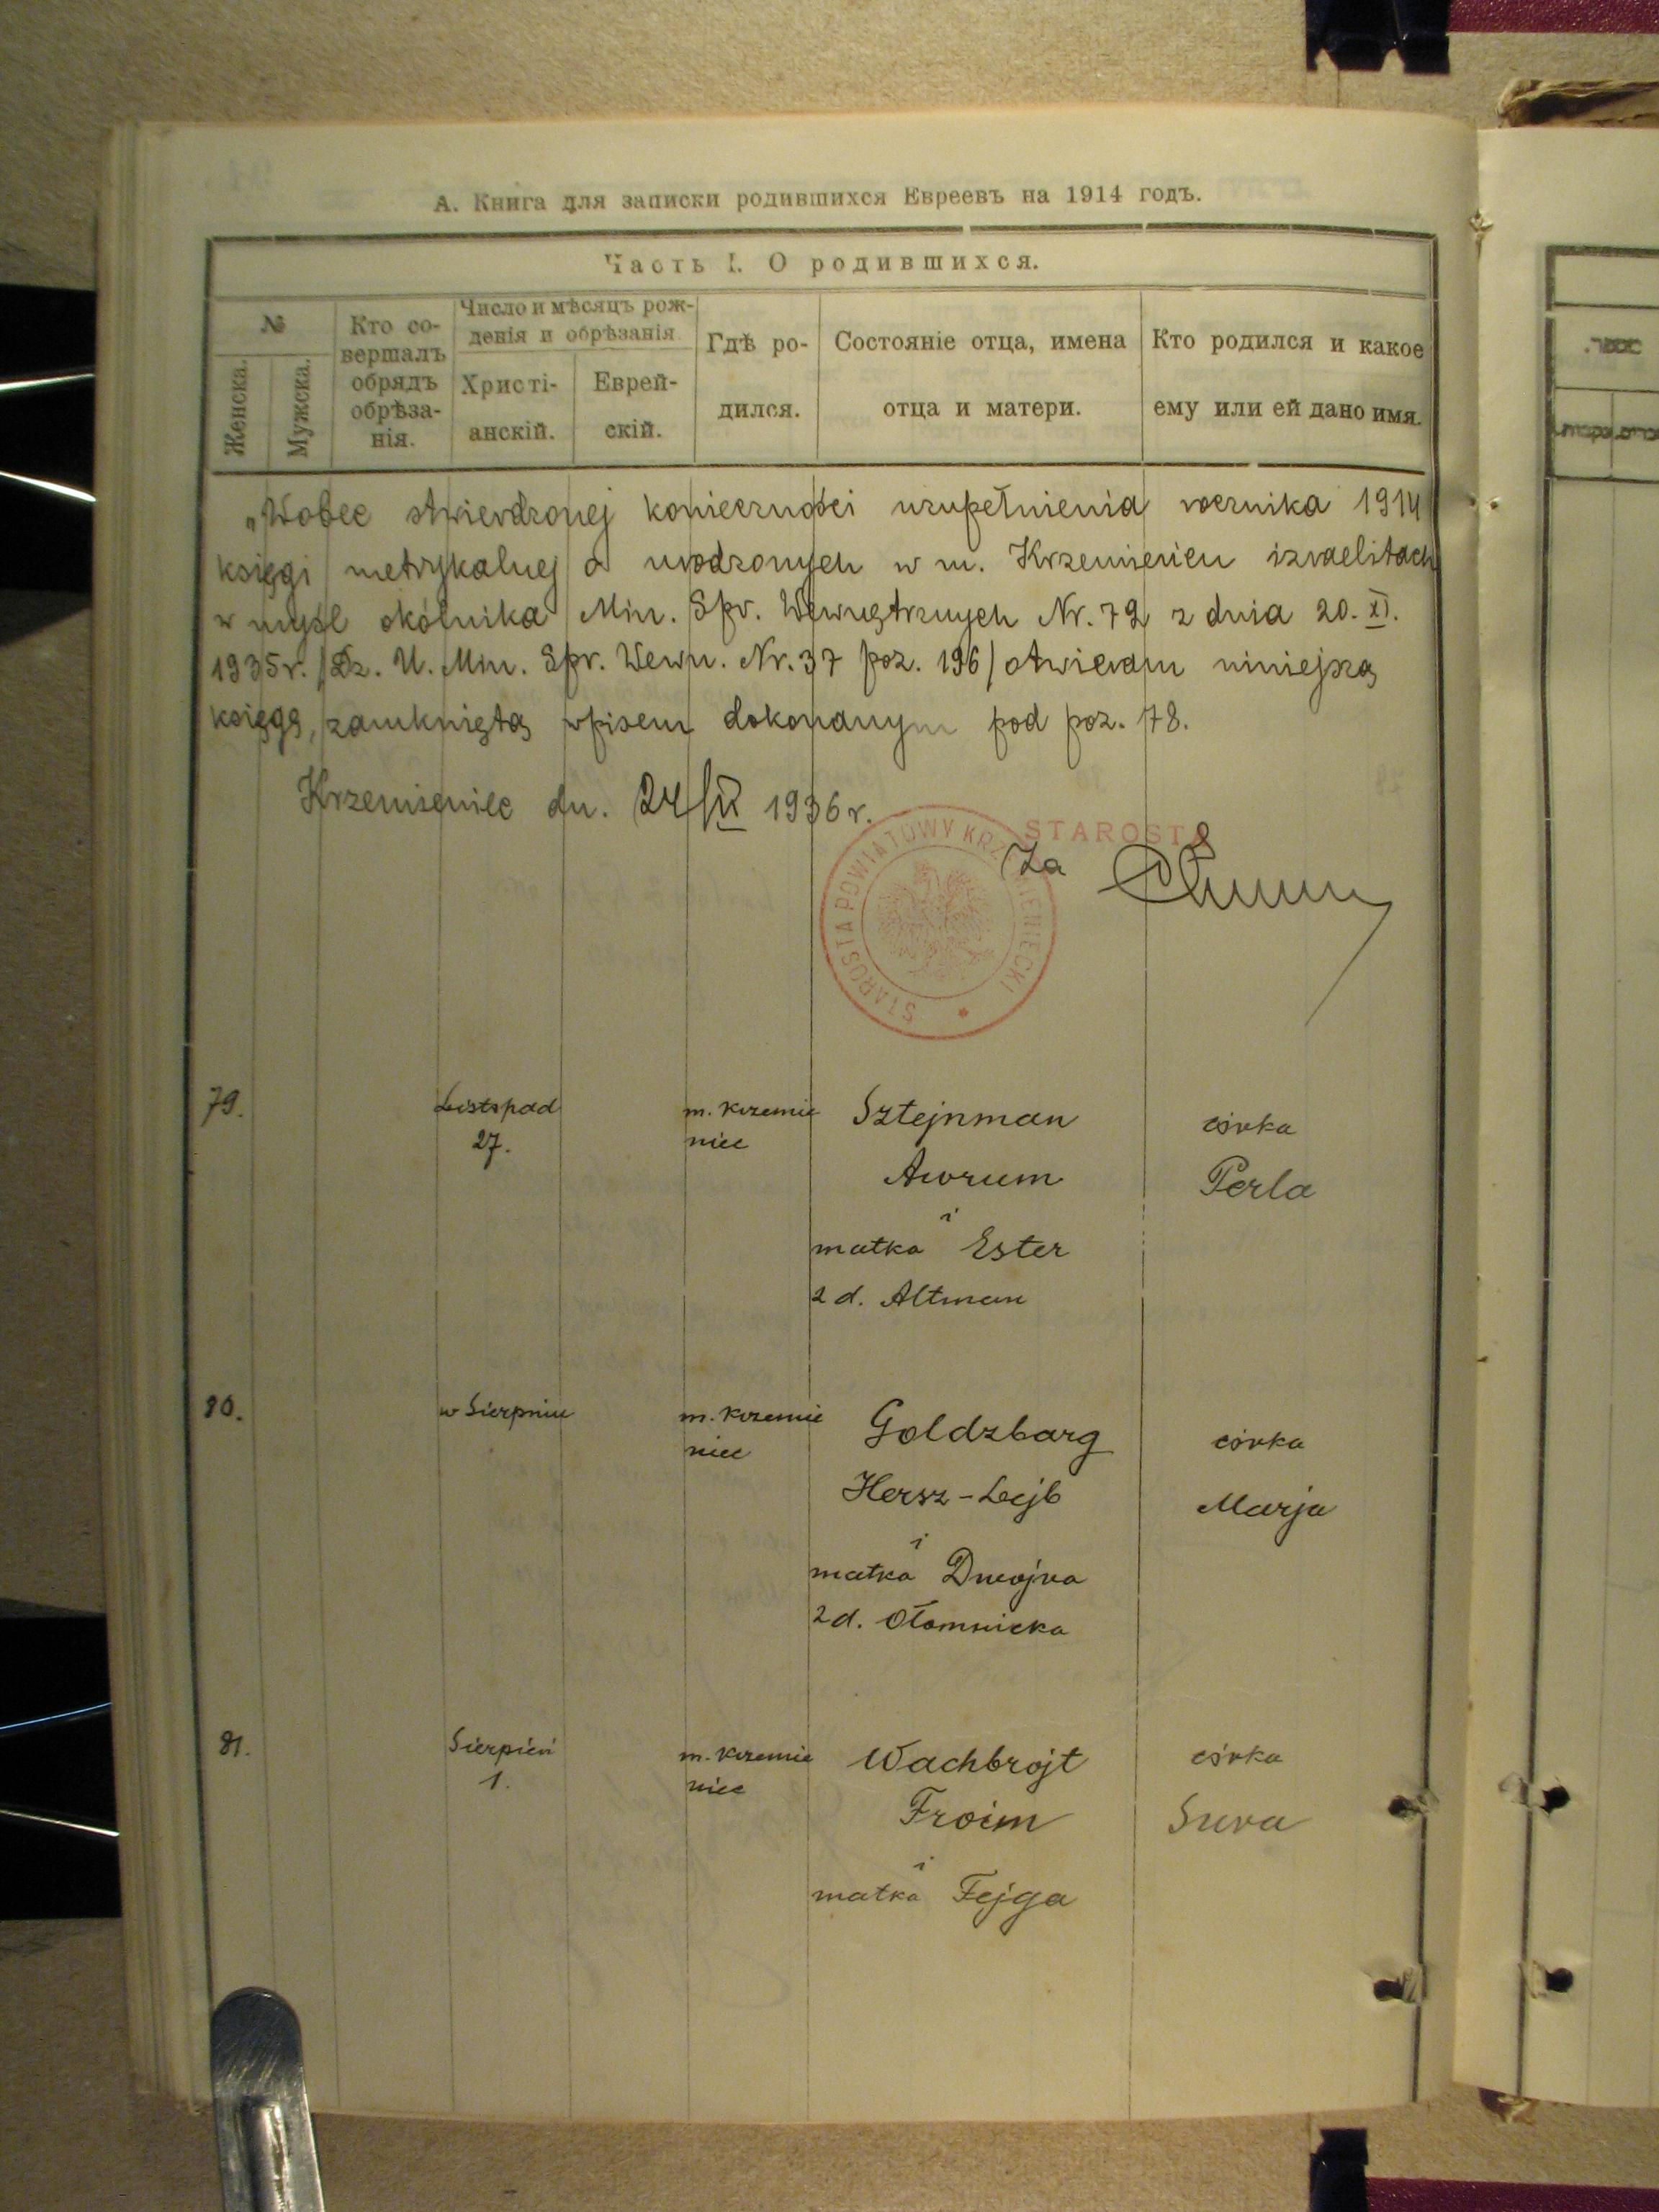 А. Книга для записки родившихся Евреевъ на 1914 годъ.
Часть I. О родившихся.
№
Женска.
Мужска.
Кто со-
вершалъ
обрядъ
обрѣза-
нія.
Число и мѣсяцъ рож-
денія и обрѣзанія
Христі-
анскій.
Еврей-
скій.
Гдѣ ро-
дился.
Состояніе отца, имена
отца и матери.
Кто родился и какое
ему или ей дано имя.
„Wobec stwierdzonej konieczności uzupełnienia rocznika 1914
księgi metrykalnej o urodzonych w m. Krzemieńcu izraelitach
w myśl okólnika Min. Spr. Wewnętrznych Nr. 72 z dnia 20. XI.
1935 r. /Dz. U. Min. Spr. Wewn. Nr. 37 poz. 196/ otwieram niniejszą
księgę, zamkniętą wpisem dokonanym pod poz. 78.
Krzemieniec dn. 24/IX 1936 r.
STAROSTA POWIATOWY KRZEMIENIECKI
STAROSTA
Za
79.
Listopad
27.
m. Krzemie
niec
Sztejnman
Awrum
i
matka Ester
z d. Altman
córka
Perla
80.
w Sierpniu
m. Krzemie
niec
Goldzbarg
Hersz-Lejb
i
matka Dwojra
z d. Ołomnicka
córka
Marja
81.
Sierpień
1.
m. Krzemie
niec
Wachbrojt
Froim
i
matka Fejga
córka
Sura